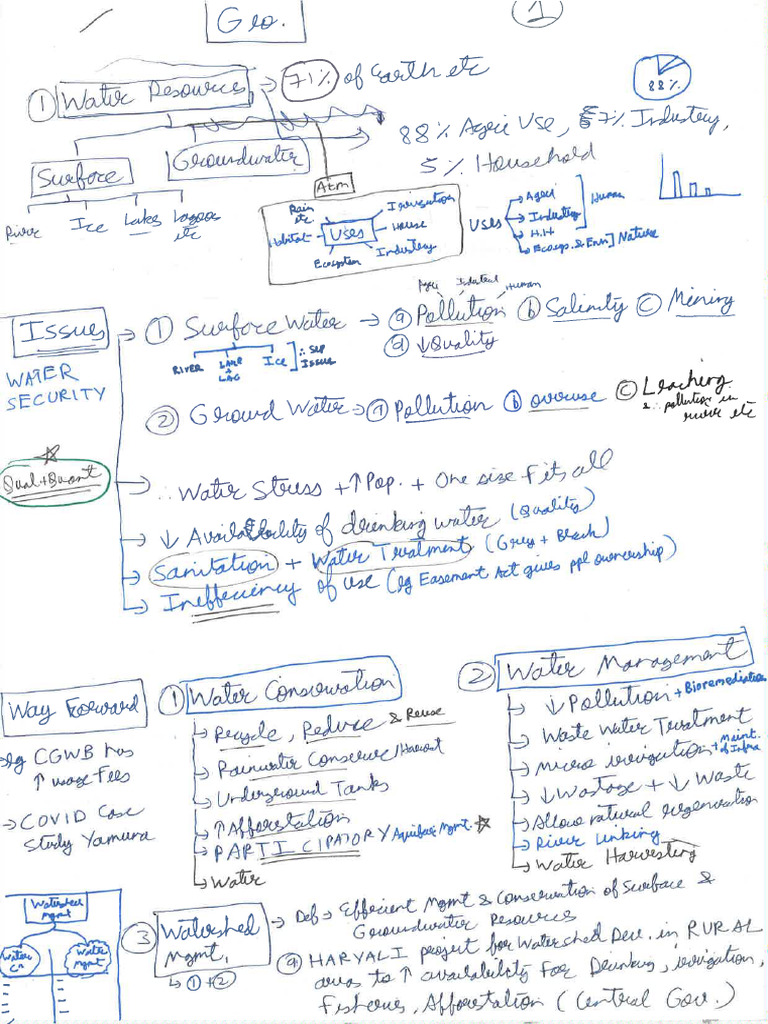 Geo.
1
① Water Resources → 71% of Earth etc
88%
88% Agri Use, 7% Industry,
5% Household
Surface
Groundwater
Atm
River Ice Lakes Lagoons etc
Rain etc
Irrigation
Habitat
Uses
House
Ecosystem
Industry
Uses
Agri
Industry
H.H
Human
Ecosys. & Env] Nature
Issues → ① Surface Water → ⓐ Pollution ⓑ Salinity ⓒ Mining
Agri Industrial Human
ⓓ ↓ Quality
RIVER LAKE + LAG ICE ] ∴ Sep Issues
WATER
SECURITY
② Ground Water → ⓐ Pollution ⓑ overuse ⓒ Leaching
& ∴ pollution in
river etc
Qual + Quant
→ ∴ Water Stress + ↑ Pop. + One size fits all
→ ↓ Availability of drinking water (Quality)
→ Sanitation + Water Treatment (Grey + Black)
→ Inefficiency of use (eg Easement Act gives ppl ownership)
Way Forward
→ eg CGWB has
↑ usage Fees
→ COVID Case
Study Yamuna
① Water Conservation
→ Recycle, Reduce & Reuse
→ Rainwater Conserve/Harvest
→ Underground Tanks
→ ↑ Afforestation
→ PARTICIPATORY Aquifer Mgmt. ☆
→ Water
② Water Management
→ ↓ Pollution + Bioremediation
→ Waste Water Treatment
→ Micro irrigation + Maint. of Infra
→ ↓ Wastage + ↓ Waste
→ Allow natural regeneration
→ River Linking
→ Water Harvesting
Watershed
Mgmt
Water Cn
Water Mgmt
③ Watershed
Mgmt.
↳ ① + ②
→ Def → Efficient Mgmt & Conservation of Surface &
Groundwater Resources
ⓐ HARYALI project for Watershed Dev. in RURAL
areas to ↑ availability for Drinking, irrigation,
Fisheries, Afforestation (Central Gov.)